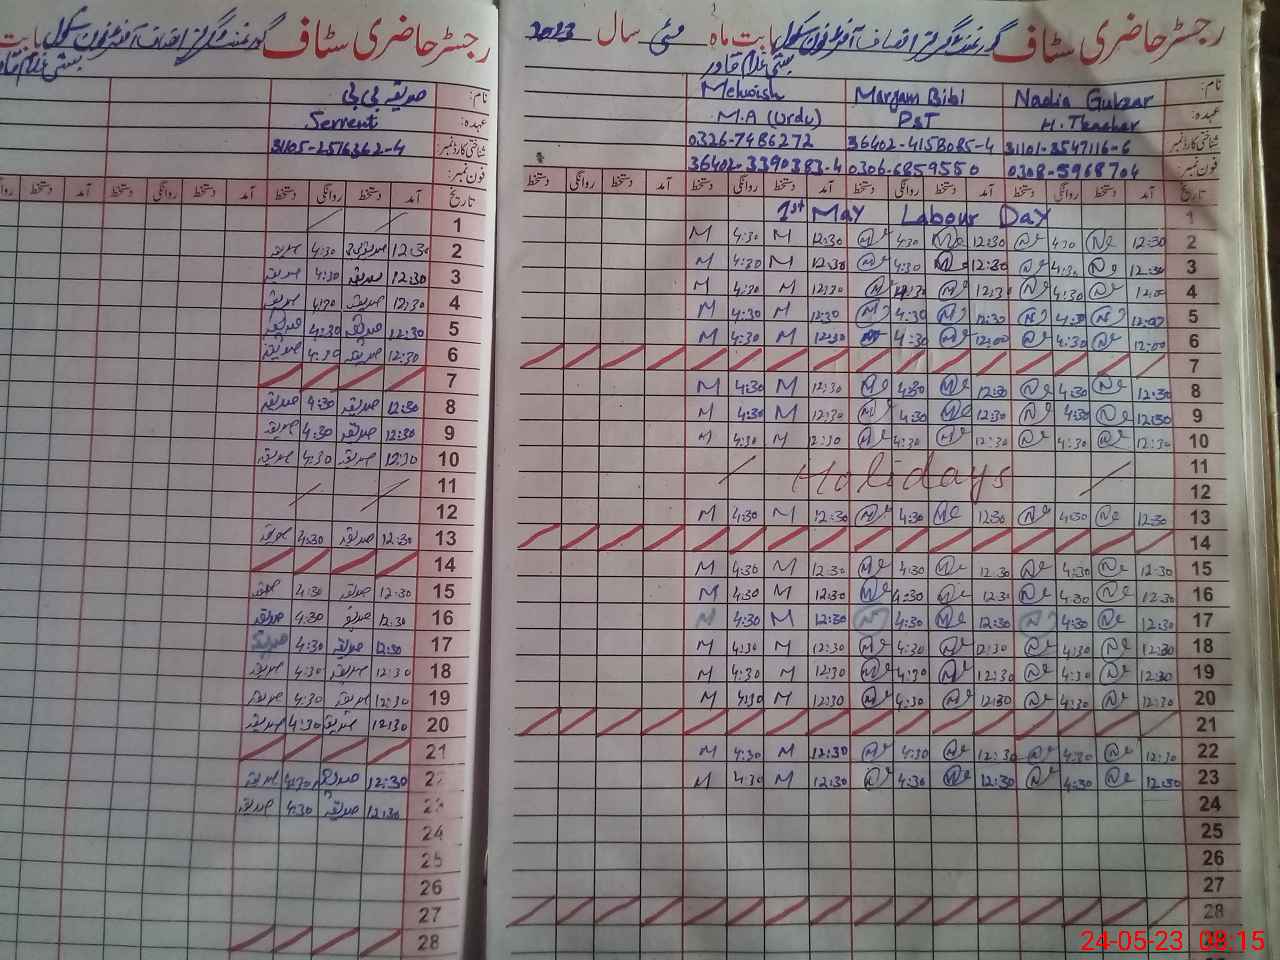 رجسٹر حاضری سٹاف گورنمنٹ گرلز انصاف آفٹرنون سکول بابت ماہ مئی سال 2023
بستی غلام قادر
نام: Nadia Gulzar Margam Bibi Mehwish
عہدہ: H.Teacher PST M.A (Urdu)
شناختی کارڈ نمبر: 31101-8547116-6 36402-4158085-4 0326-7486272
فون نمبر: 0308-5968704 0306-6859550 36402-3390383-4
تاریخ آمد دستخط روانگی دستخط آمد دستخط روانگی دستخط آمد دستخط روانگی دستخط آمد دستخط روانگی دستخط
1 1st May Labour Day
2 12:30 Ne 4:30 Ne 12:30 Me 4:30 Me 12:30 M 4:30 M
3 12:30 Ne 4:30 Ne 12:30 Me 4:30 Me 12:30 M 4:30 M
4 12:00 Ne 4:30 Ne 12:30 Me 4:30 M 12:30 M 4:30 M
5 12:00 Ne 4:30 Ne 12:30 Me 4:30 Me 12:30 M 4:30 M
6 12:00 Ne 4:30 Ne 12:00 Me 4:30 12:30 M 4:30 M
7
8 12:30 Ne 4:30 Ne 12:30 Me 4:30 Me 12:30 M 4:30 M
9 12:30 Ne 4:30 Ne 12:30 Me 4:30 Me 12:30 M 4:30 M
10 12:30 Ne 4:30 Ne 12:30 Me 4:30 Me 12:30 M 4:30 M
11 Holidays
12
13 12:30 Ne 4:30 Ne 12:30 Me 4:30 Me 12:30 M 4:30 M
14
15 12:30 Ne 4:30 Ne 12:30 Me 4:30 Me 12:30 M 4:30 M
16 12:30 Ne 4:30 Ne 12:30 Me 4:30 Me 12:30 M 4:30 M
17 12:30 Ne 4:30 Ne 12:30 Me 4:30 12:30 M 4:30 M
18 12:30 Ne 4:30 Ne 12:30 Me 4:30 Me 12:30 M 4:30 M
19 12:30 Ne 4:30 Ne 12:30 Me 4:30 Me 12:30 M 4:30 M
20 12:30 Ne 4:30 Ne 12:30 Me 4:30 Me 12:30 M 4:30 M
21
22 12:30 Ne 4:30 Ne 12:30 Me 4:30 Me 12:30 M 4:30 M
23 12:30 Ne 4:30 Ne 12:30 Me 4:30 Me 12:30 M 4:30 M
24
25
26
27
28
رجسٹر حاضری سٹاف گورنمنٹ گرلز انصاف آفٹرنون سکول بابت
بستی غلام قادر
نام: صدیقہ بی بی
عہدہ: Servent
شناختی کارڈ نمبر: 31105-2516362-4
فون نمبر:
تاریخ آمد دستخط روانگی دستخط آمد دستخط روانگی دستخط آمد دستخط روانگی
1
2 12:30 صدیقہ 4:30 صدیقہ
3 12:30 صدیقہ 4:30 صدیقہ
4 12:30 صدیقہ 4:30 صدیقہ
5 12:30 صدیقہ 4:30 صدیقہ
6 12:30 صدیقہ 4:30 صدیقہ
7
8 12:30 صدیقہ 4:30 صدیقہ
9 12:30 صدیقہ 4:30 صدیقہ
10 12:30 صدیقہ 4:30 صدیقہ
11
12
13 12:30 صدیقہ 4:30 صدیقہ
14
15 12:30 صدیقہ 4:30 صدیقہ
16 12:30 صدیقہ 4:30 صدیقہ
17 12:30 صدیقہ 4:30 صدیقہ
18 12:30 صدیقہ 4:30 صدیقہ
19 12:30 صدیقہ 4:30 صدیقہ
20 12:30 صدیقہ 4:30 صدیقہ
21
22 12:30 صدیقہ 4:30 صدیقہ
23 12:30 صدیقہ 4:30 صدیقہ
24
25
26
27
28
24-05-23 08:15